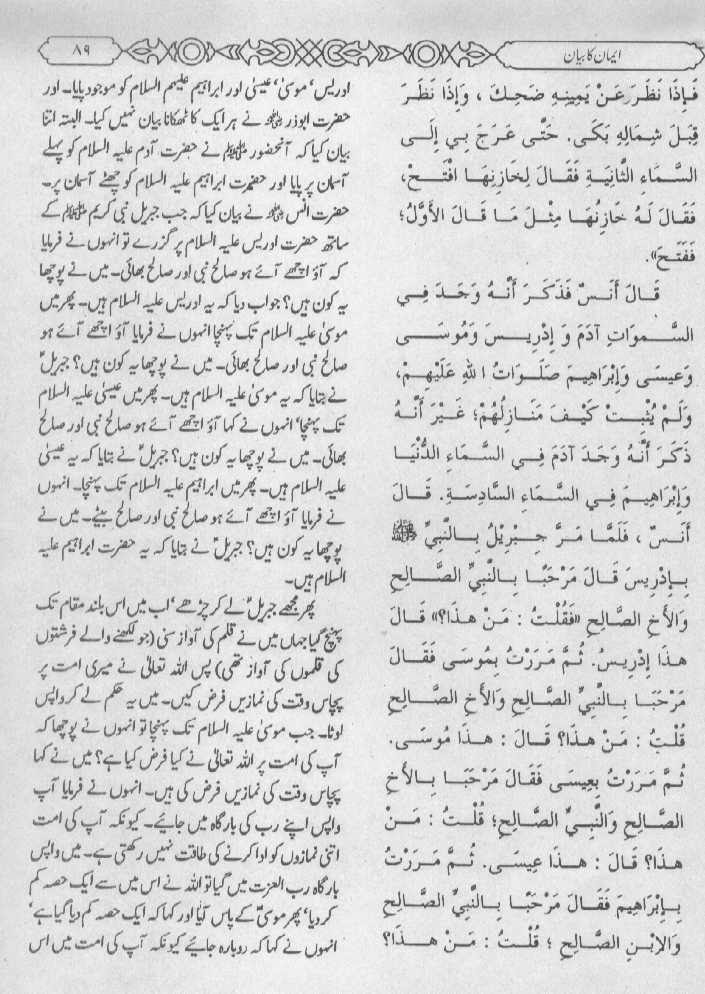 ایمان کا بیان
۸۹
فَإِذَا نَظَرَ عَنْ يَمِينِهِ ضَحِكَ ، وَإِذَا نَظَرَ
قِبَلَ شِمَالِهِ بَكَى. حَتَّى عَرَجَ بِي إِلَى
السَّمَاءِ الثَّانِيَةِ فَقَالَ لِخَازِنِهَا افْتَحْ،
فَقَالَ لَهُ خَازِنُهَا مِثْلَ مَا قَالَ الأَوَّلُ؛
فَفَتَحَ)).
قَالَ أَنَسٌ فَذَكَرَ أَنَّهُ وَجَدَ فِي
السَّمواتِ آدَمَ وَ إِدْرِيسَ وَمُوسَى
وَعِيسَى وَإِبْرَاهِيمَ صَلَوَاتُ اللهِ عَلَيْهِمْ،
وَلَمْ يُثْبِتْ كَيْفَ مَنَازِلُهُمْ؛ غَيْرَ أَنَّهُ
ذَكَرَ أَنَّهُ وَجَدَ آدَمَ فِي السَّمَاءِ الدُّنْيَا
وَإِبْرَاهِيمَ فِي السَّمَاءِ السَّادِسَةِ. قَالَ
أَنَسٌ ، فَلَمَّا مَرَّ جِبْرِيْلُ بِالنَّبِيِّ ﷺ
بِإِدْرِيسَ قَالَ مَرْحَبًا بِالنَّبِيِّ الصَّالِحِ
وَالأَخِ الصَّالِحِ ((فَقُلْتُ : مَنْ هذَا؟)) قَالَ
هذَا إِدْرِيسُ. ثُمَّ مَرَرْتُ بِمُوسَى فَقَالَ
مَرْحَبًا بِالنَّبِيِّ الصَّالِحِ وَالأَخِ الصَّالِحِ
قُلْتُ : مَنْ هذَا؟ قَالَ : هذَا مُوسَى.
ثُمَّ مَرَرْتُ بِعِيسَى فَقَالَ مَرْحَبًا بِالأَخِ
الصَّالِحِ وَالنَّبِيِّ الصَّالِحِ؛ قُلْتُ : مَنْ
هذَا؟ قَالَ : هذَا عِيسَى. ثُمَّ مَرَرْتُ
بِإِبْرَاهِيمَ فَقَالَ مَرْحَبًا بِالنَّبِيِّ الصَّالِحِ
وَالاِبْنِ الصَّالِحِ ؛ قُلْتُ : مَنْ هذَا؟
ادریس، موسیٰ، عیسیٰ اور ابراہیم علیہم السلام کو موجود پایا۔ اور
حضرت ابوذر رضی اللہ عنہ نے ہر ایک کا ٹھکانا بیان نہیں کیا۔ البتہ اتنا
بیان کیا کہ آنحضور ﷺ نے حضرت آدم علیہ السلام کو پہلے
آسمان پر پایا اور حضرت ابراہیم علیہ السلام کو چھٹے آسمان پر۔
حضرت انس رضی اللہ عنہ نے بیان کیا کہ جب جبریل نبی کریم ﷺ کے
ساتھ حضرت ادریس علیہ السلام پر گزرے تو انہوں نے فرمایا
کہ آؤ اچھے آئے ہو صالح نبی اور صالح بھائی۔ میں نے پوچھا
یہ کون ہیں؟ جواب دیا کہ یہ ادریس علیہ السلام ہیں۔ پھر میں
موسیٰ علیہ السلام تک پہنچا انہوں نے فرمایا آؤ اچھے آئے ہو
صالح نبی اور صالح بھائی۔ میں نے پوچھا یہ کون ہیں؟ جبریلؑ
نے بتایا کہ یہ موسیٰ علیہ السلام ہیں۔ پھر میں عیسیٰ علیہ السلام
تک پہنچا، انہوں نے کہا آؤ اچھے آئے ہو صالح نبی اور صالح
بھائی۔ میں نے پوچھا یہ کون ہیں؟ جبریلؑ نے بتایا کہ یہ عیسیٰ
علیہ السلام ہیں۔ پھر میں ابراہیم علیہ السلام تک پہنچا۔ انہوں
نے فرمایا آؤ اچھے آئے ہو صالح نبی اور صالح بیٹے۔ میں نے
پوچھا یہ کون ہیں؟ جبریلؑ نے بتایا کہ یہ حضرت ابراہیم علیہ
السلام ہیں۔
پھر مجھے جبریلؑ لے کر چڑھے، اب میں اس بلند مقام تک
پہنچ گیا جہاں میں نے قلم کی آواز سنی (جو لکھنے والے فرشتوں
کی قلموں کی آواز تھی) پس اللہ تعالیٰ نے میری امت پر
پچاس وقت کی نمازیں فرض کیں۔ میں یہ حکم لے کر واپس
لوٹا۔ جب موسیٰ علیہ السلام تک پہنچا تو انہوں نے پوچھا کہ
آپ کی امت پر اللہ تعالیٰ نے کیا فرض کیا ہے؟ میں نے کہا
پچاس وقت کی نمازیں فرض کی ہیں۔ انہوں نے فرمایا آپ
واپس اپنے رب کی بارگاہ میں جائیے۔ کیونکہ آپ کی امت
اتنی نمازوں کو ادا کرنے کی طاقت نہیں رکھتی ہے۔ میں واپس
بارگاہ رب العزت میں گیا تو اللہ نے اس میں سے ایک حصہ کم
کر دیا، پھر موسیٰؑ کے پاس آیا اور کہا کہ ایک حصہ کم دیا گیا ہے،
انہوں نے کہا کہ دوبارہ جائیے کیونکہ آپ کی امت میں اس